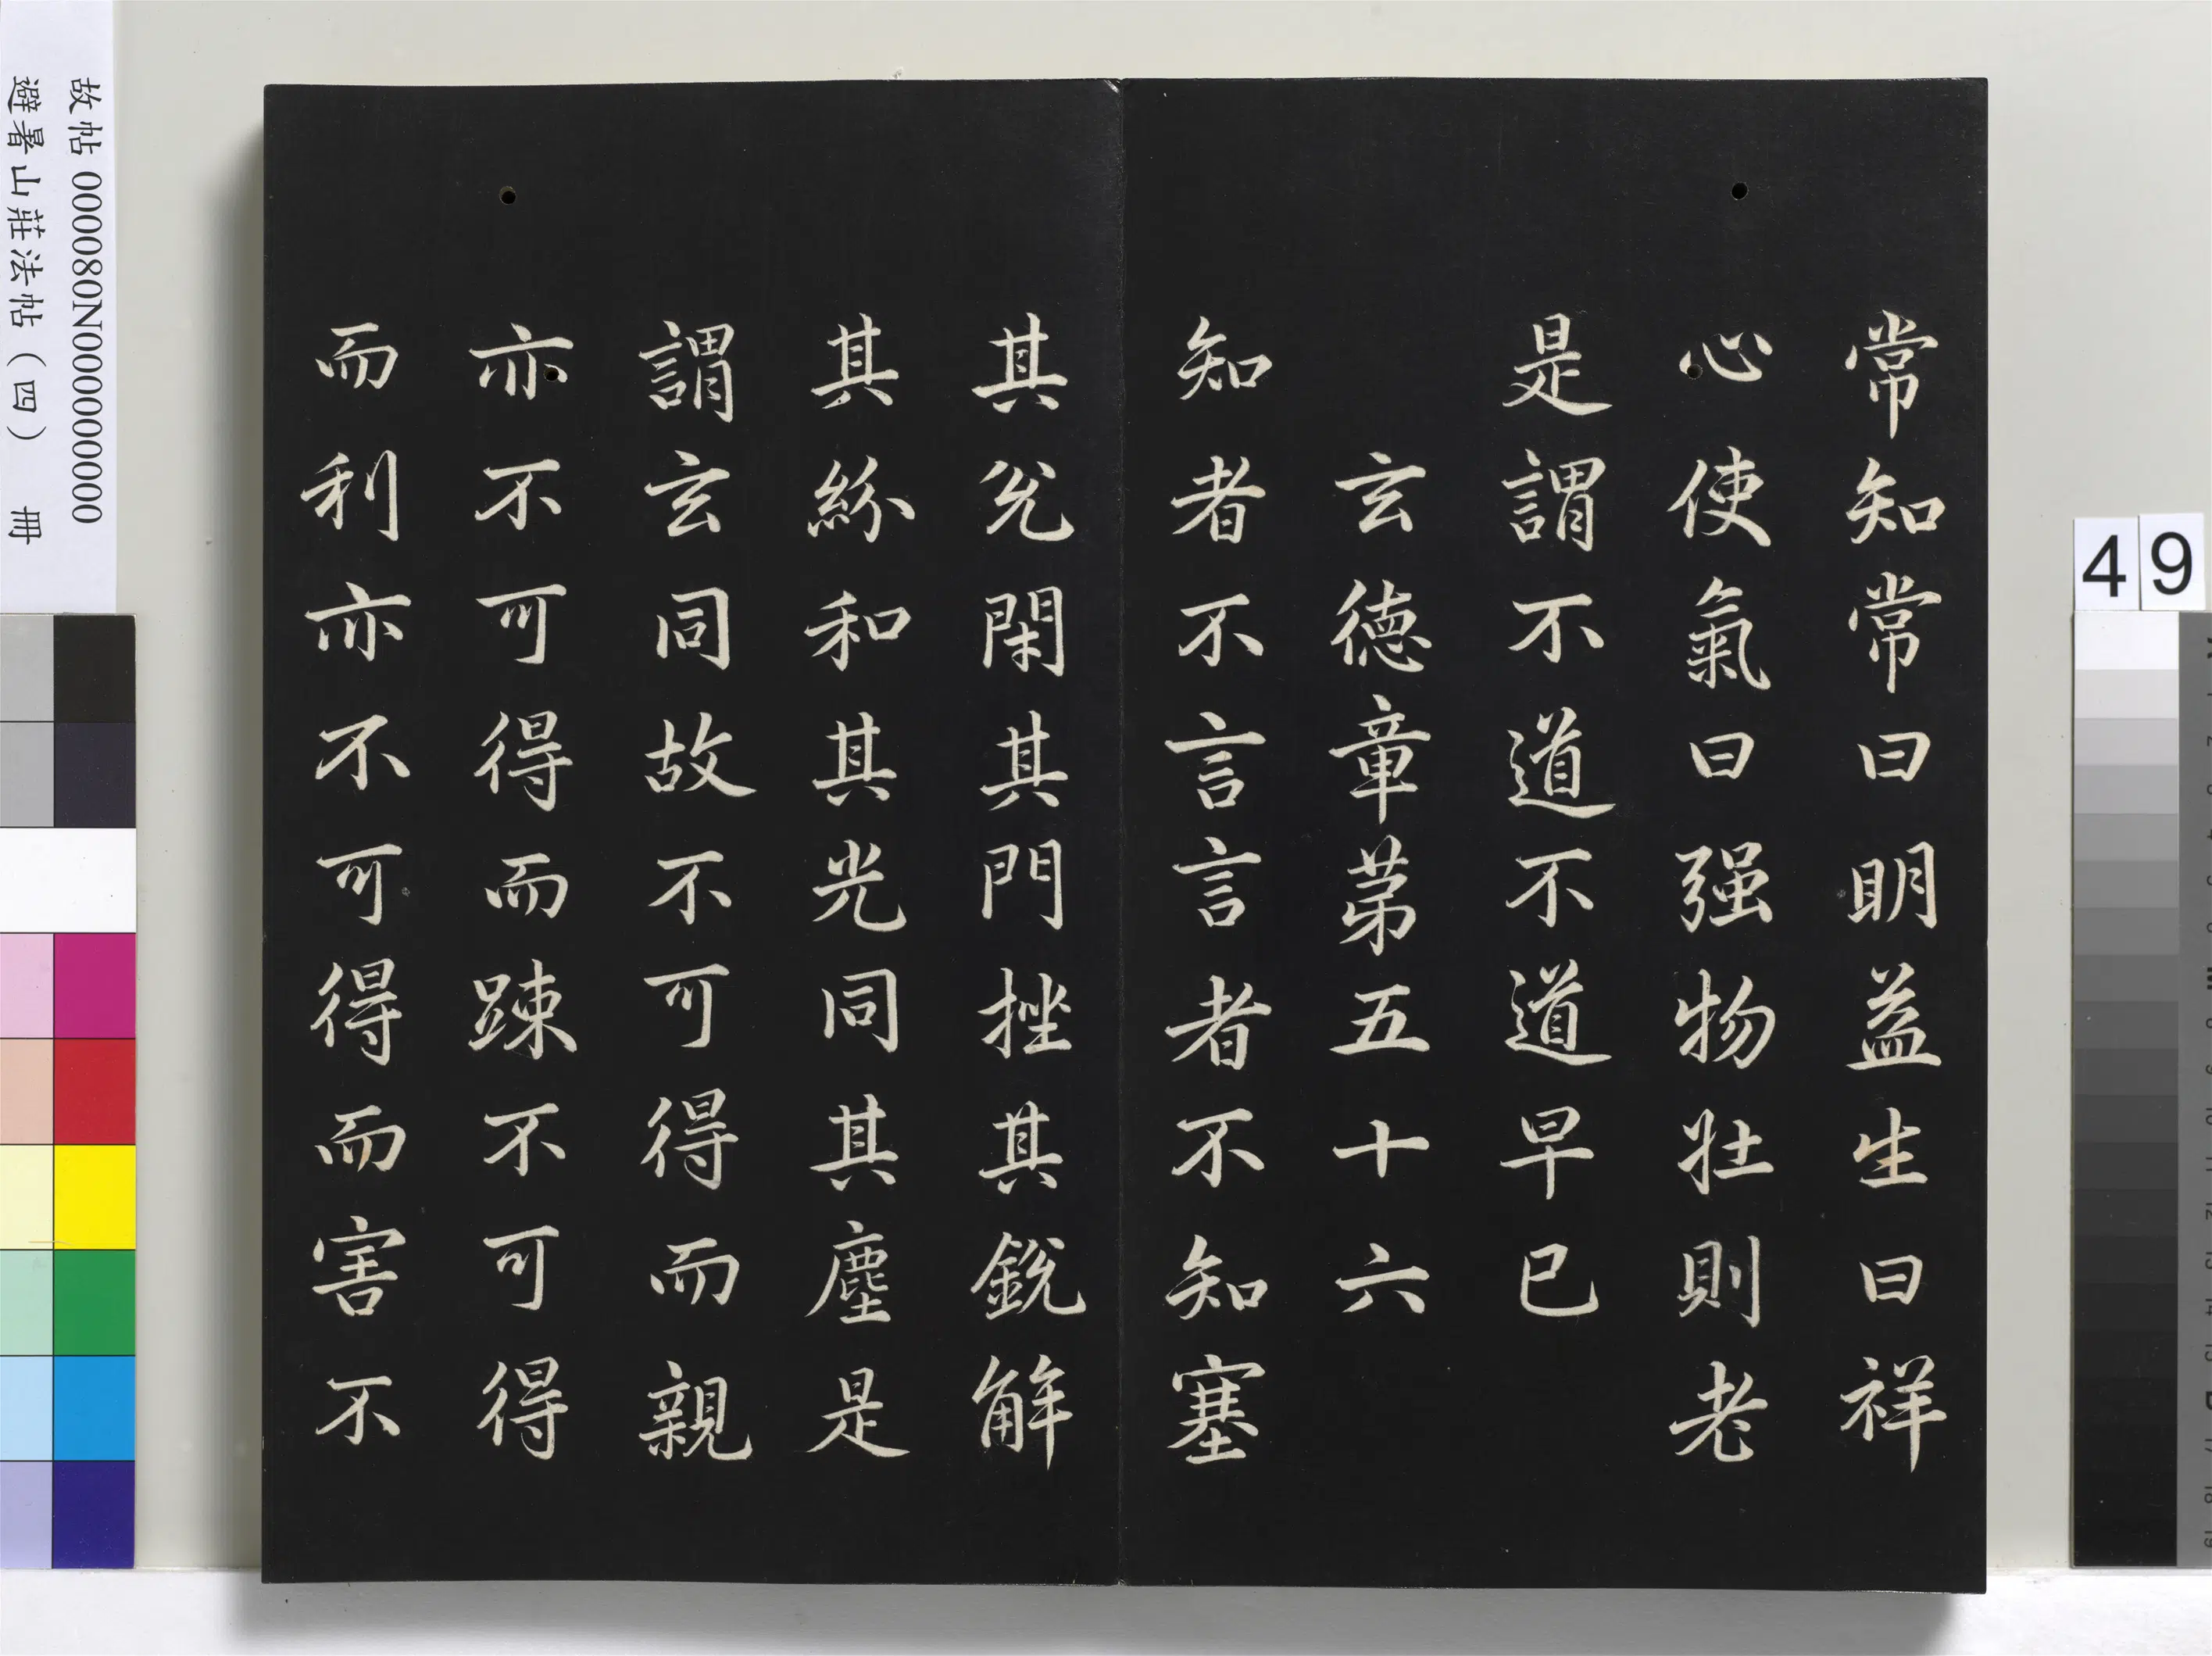 常知常曰明益生曰祥
心使氣曰强物壯則老
是謂不道不道早已
玄德章第五十六
知者不言言者不知塞
其兊閑其門挫其銳解
其紛和其光同其塵是
謂玄同故不可得而親
亦不可得而踈不可得
而利亦不可得而害不
故帖 000080N000000000
避暑山莊法帖(四) 冊
49